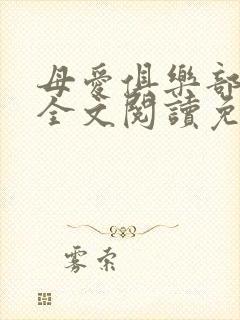 母愛俱樂部
全文閱讀免
雾索